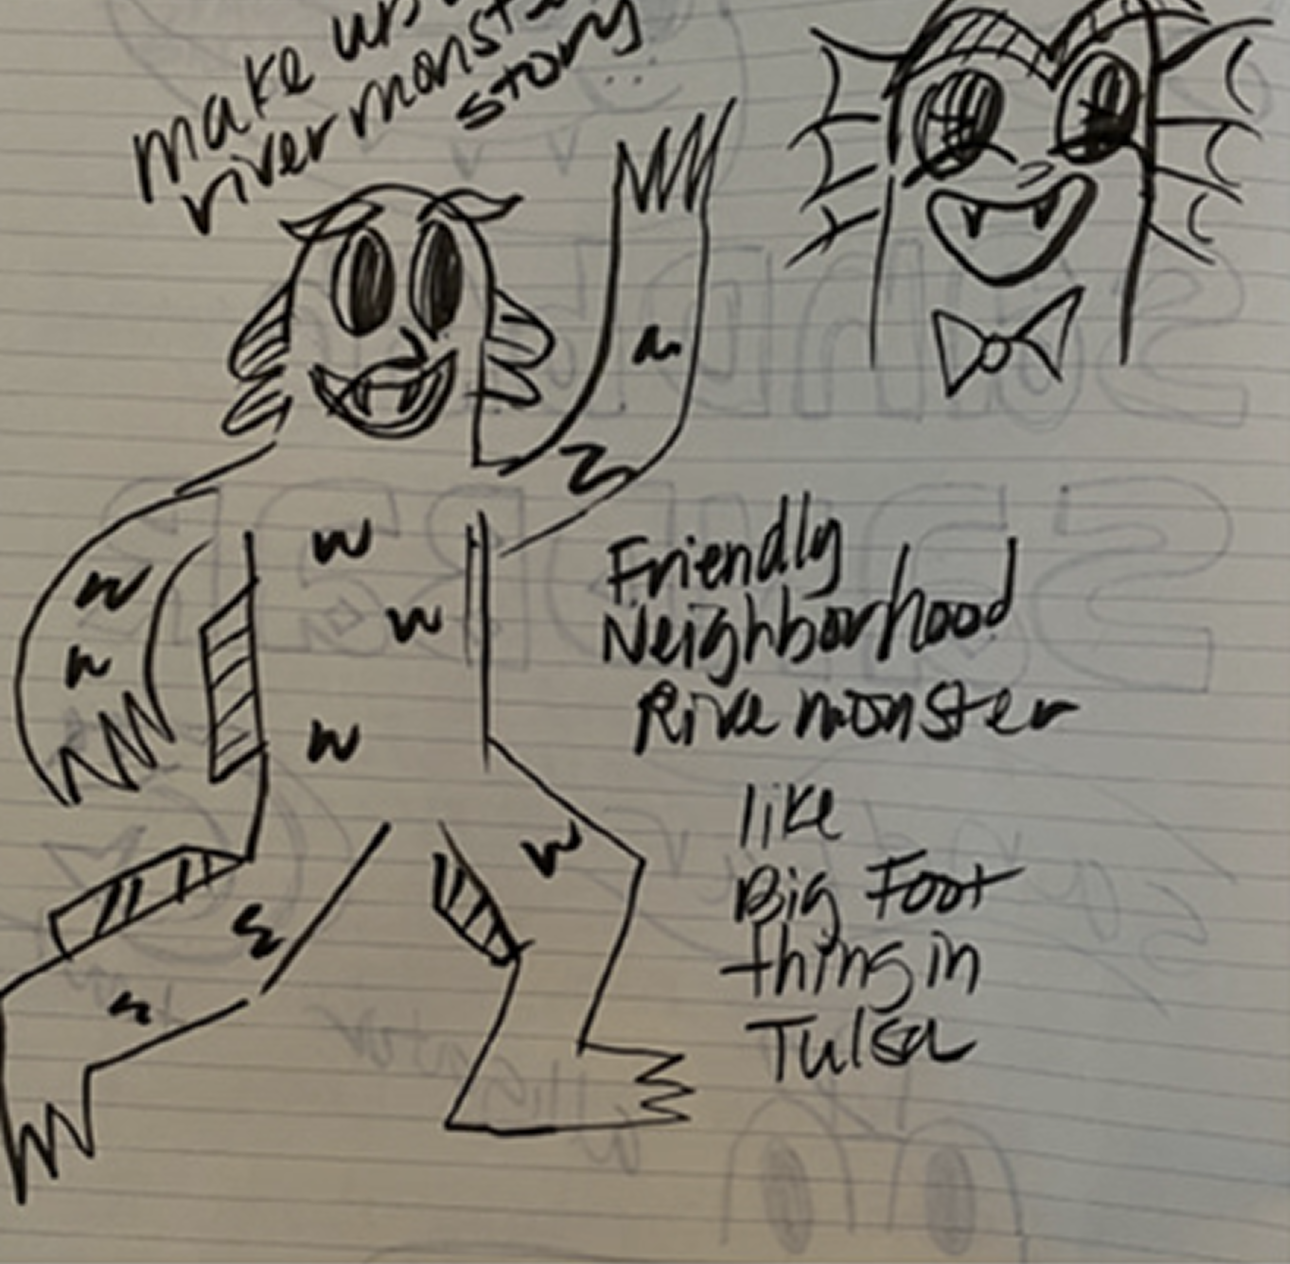 make up
river monster
story
Friendly
Neighborhood
Rive monster
like
Big Foot
thing in
Tulsa